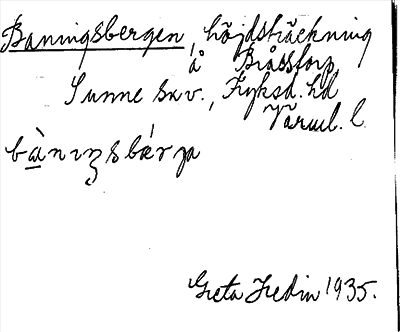 Baningsbergen, höjdsträckning
å Bråsstorp
Sunne skv., Fryksd. hd
Värml. l.
bànıŋsbærja
Greta Hedin 1935.